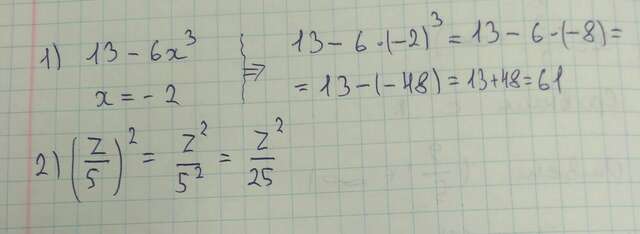 1) 13 - 6x³ ⇒ 13 - 6 · (-2)³ = 13 - 6 · (-8) =
x = -2 = 13 - (-48) = 13 + 48 = 61
2) (z/5)² = z²/5² = z²/25